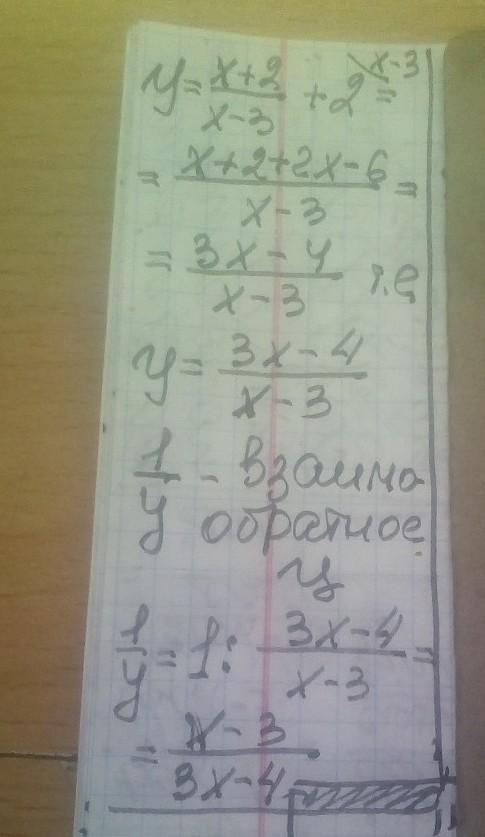 y = \frac{x+2}{x-3} + 2^{\x-3} =
= \frac{x+2+2x-6}{x-3} =
= \frac{3x-4}{x-3} т.е
y = \frac{3x-4}{x-3}
\frac{1}{y} - взаимно
обратное
y
\frac{1}{y} = 1 : \frac{3x-4}{x-3} =
= \frac{x-3}{3x-4}